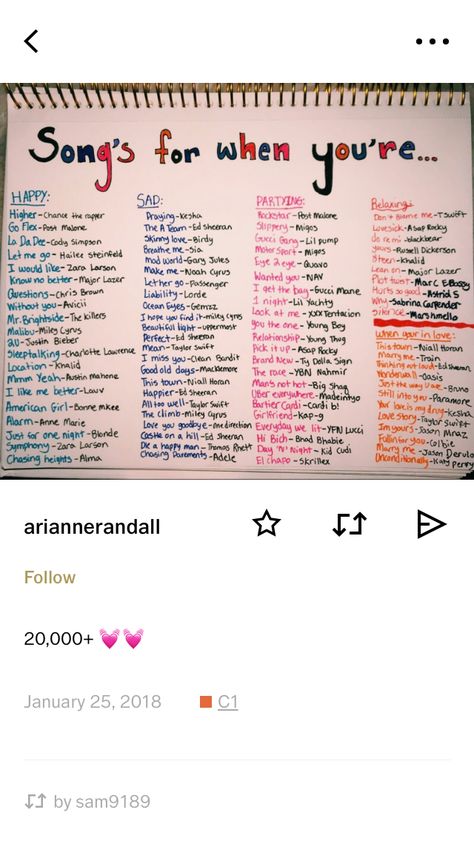 Song's for when you're...
HAPPY:
Higher-Chance the rapper
Go Flex-Post Malone
La Da Dee-Cody Simpson
Let me go-Hailee Steinfeld
I would like-Zara Larson
Know no better-Major Lazer
Questions-Chris Brown
Without you-Avicii
Mr. Brightside-The killers
Malibu-Miley Cyrus
2U-Justin Bieber
Sleeptalking-Charlotte Lawrence
Location-Khalid
Mmm Yeah-Austin Mahone
I like me better-Lauv
American Girl-Bonne McKee
Alarm-Anne Marie
Just for one night-Blonde
Symphony-Zara Larson
Chasing heights-Alma
SAD:
Praying-Kesha
The A Team-Ed Sheeran
Skinny love-Birdy
Breathe me-Sia
Mad world-Gary Jules
Make me-Noah Cyrus
Let her go-Passenger
Liability-Lorde
Ocean Eyes-
I hope you find it-miley Cyrus
Beautiful light-uppermost
Perfect-Ed Sheeran
Mean-Taylor Swift
I miss you-Clean Bandit
Good old days-Macklemore
This town-Niall Horan
Happier-Ed Sheeran
All too well-Taylor Swift
The climb-Miley Cyrus
Love you goodbye-One direction
Castle on a hill-Ed Sheeran
Die a happy man-Thomas Rhett
Chasing Pavements-Adele
PARTYING:
Rockstar-Post Malone
Slippery-Migos
Gucci Gang-Lil pump
Motor Sport-Migos
Eye 2 eye-Quavo
Wanted you-NAV
I get the bag-Gucci Mane
1 night-Lil Yachty
Look at me-XXXTentacion
You the one-Young Boy
Relationship-Young Thug
Pick it up-Asap Rocky
Brand New-Ty Dolla Sign
The race-YBN Nahmir
Man's not hot-Big Shaq
Uber everywhere-Madeintyo
Bartier Cardi-Cardi b!
Girlfriend-Kap-g
Everyday we lit-YFN Lucci
Hi Bich-Bhad Bhabie
Day 'N' Night-Kid Cudi
El chapo-Skrillex
Relaxing:
Don't Blame me-T.swift
Lovesick-Asap Rocky
do re mi-blackbear
Yours-Russell Dickerson
8teen-Khalid
Lean on-Major Lazer
Plot twist-Marc E Bassy
Hurts so good-Astrid S
Why-Sabrina Carpender
Silence-Marshmello
When your in love:
This town-Niall Horan
Marry me-Train
Thinking out loud-Ed Sheeran
Wonderwall-Oasis
Just the way u are-Bruno
Still into you-Paramore
Your love is my drug-kesha
Love story-Taylor Swift
Im yours-Jason Mraz
Fallin for you-Colbie
Marry me-Jason Derulo
Unconditionally-Katy Perry
ariannerandall
Follow
20,000+ 💓💓
January 25, 2018 C1
by sam9189